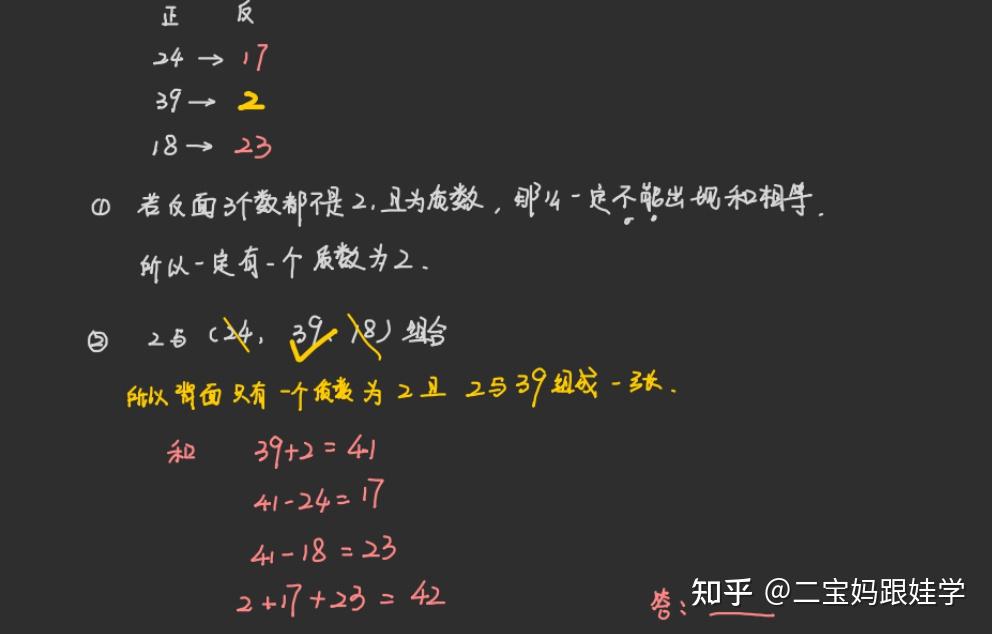 正 反
24 → 17
39 → 2
18 → 23
① 若反面3个数都不是2,且为质数,那么一定不能出现和相等.
所以一定有一个质数为2.
② 2与(24, 39, 18)组合
所以背面只有一个质数为2且 2与39组成一张.
和 39+2=41
41-24=17
41-18=23
2+17+23=42
答:
知乎 @二宝妈跟娃学